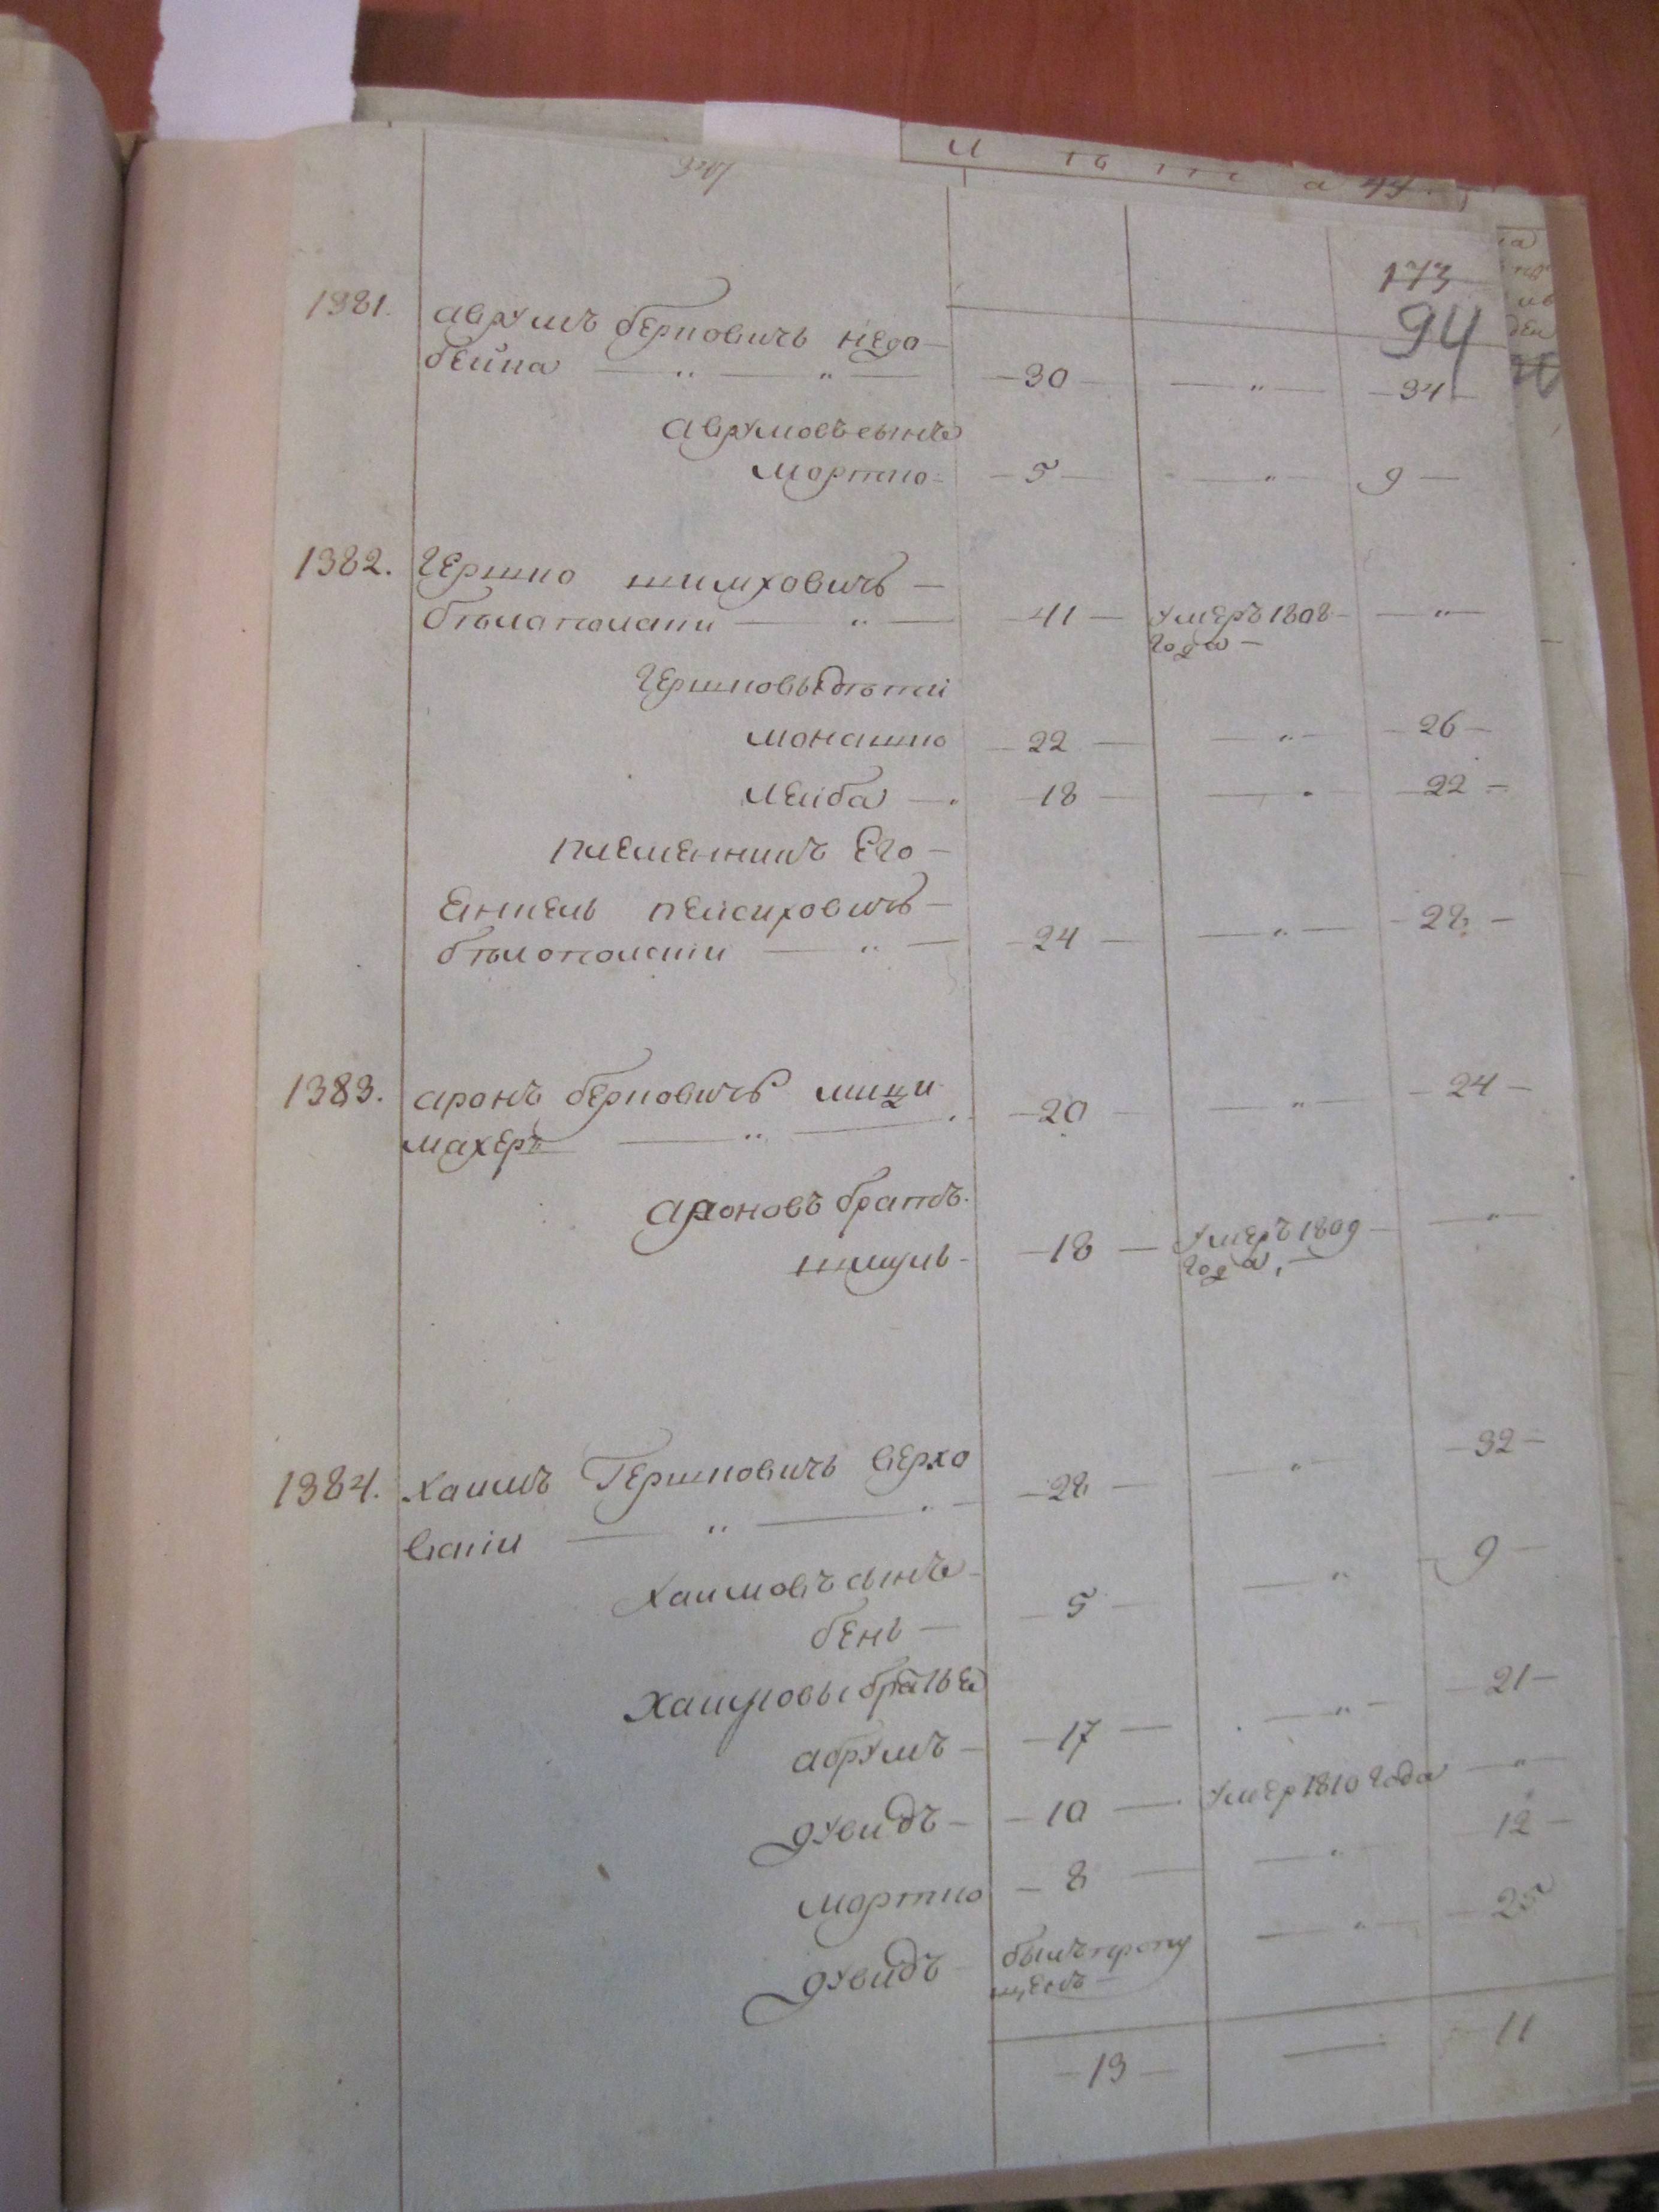 173
94
1381. аврумъ берковичъ недо
бейка — „ — „ — — 30 — — „ — — 34 —
аврумовъ сынъ
мортко — 5 — — „ — 9 —
1382. Гершко шимховичъ —
бѣлополски — „ — — 41 — умеръ 1808 — — „ —
года —
Гершковы дѣти
монашко — 22 — — „ — — 26 —
лейба — — 18 — — „ — — 22 —
племенникъ Его —
Енкель пейсиховичъ —
бѣлополски — „ — — 24 — — „ — — 28 —
1383. аронъ берковичъ мици
махеръ — „ — — 20 — — „ — — 24 —
ароновъ братъ
шмуль — 18 — умеръ 1809 — — „ —
года, —
1384. Хаимъ Гершковичъ верхо
вскій — „ — — 28 — — „ — — 32 —
Хаимовъ сынъ
бень — — 5 — — „ — — 9 —
Хаимовы братья
абрумъ — — 17 — — „ — — 21 —
дувидъ — — 10 — умер 1810 года — „ —
мортко — 8 — — „ — 12 —
дувидъ — былъ пропу — „ — — 25
щенъ —
— 13 — — 11